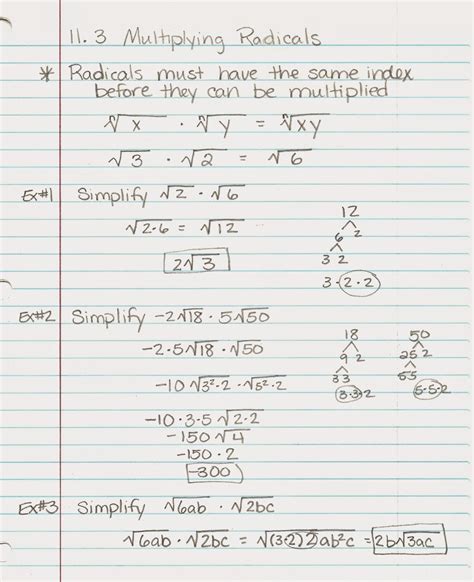 11.3 Multiplying Radicals
* Radicals must have the same index
before they can be multiplied
ⁿ√x · ⁿ√y = ⁿ√xy
√3 · √2 = √6
Ex#1 Simplify √2 · √6
√2·6 = √12
2√3
12
6 2
3 2
3·2·2
Ex#2 Simplify -2√18 · 5√50
-2·5√18 · √50
-10√3²·2 · √5²·2
-10·3·5√2·2
-150√4
-150·2
-300
18
9 2
3 3
3·3·2
50
25 2
5 5
5·5·2
Ex#3 Simplify √6ab · √2bc
√6ab · √2bc = √(3·2)2ab²c = 2b√3ac